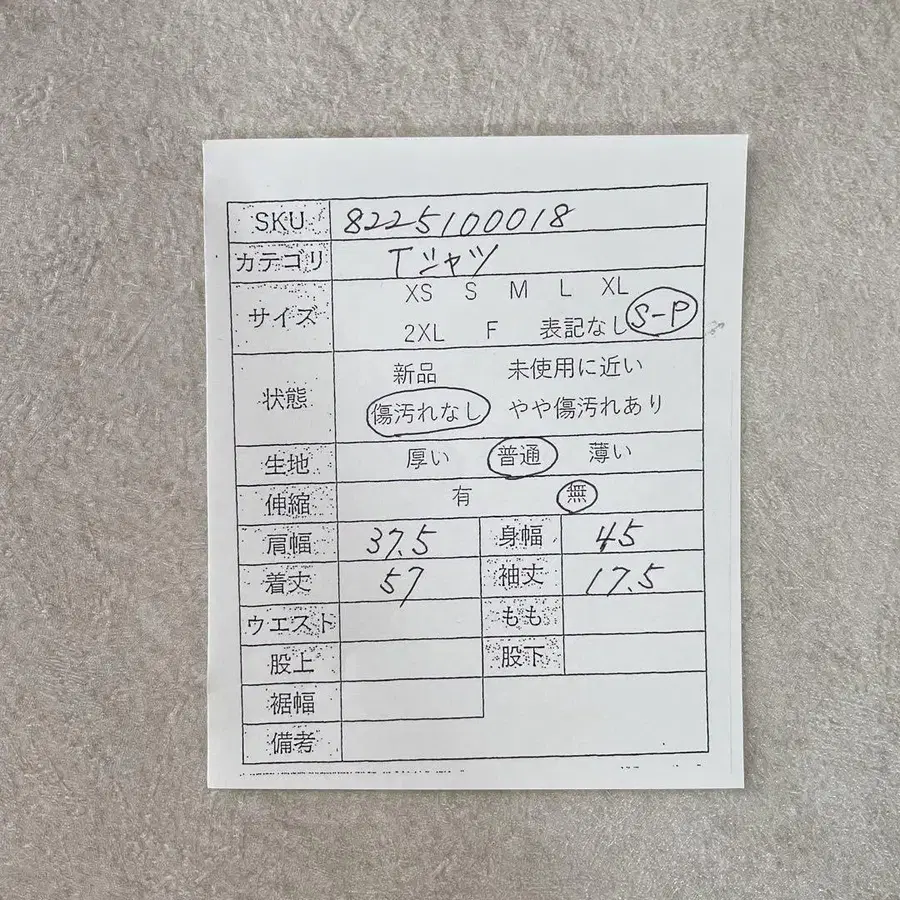 SKU 8225100018
カテゴリ Tシャツ
サイズ XS S M L XL
2XL F 表記なし S-P
状態 新品 未使用に近い
傷汚れなし やや傷汚れあり
生地 厚い 普通 薄い
伸縮 有 無
肩幅 37.5 身幅 45
着丈 57 袖丈 17.5
ウエスト もも
股上 股下
裾幅
備考